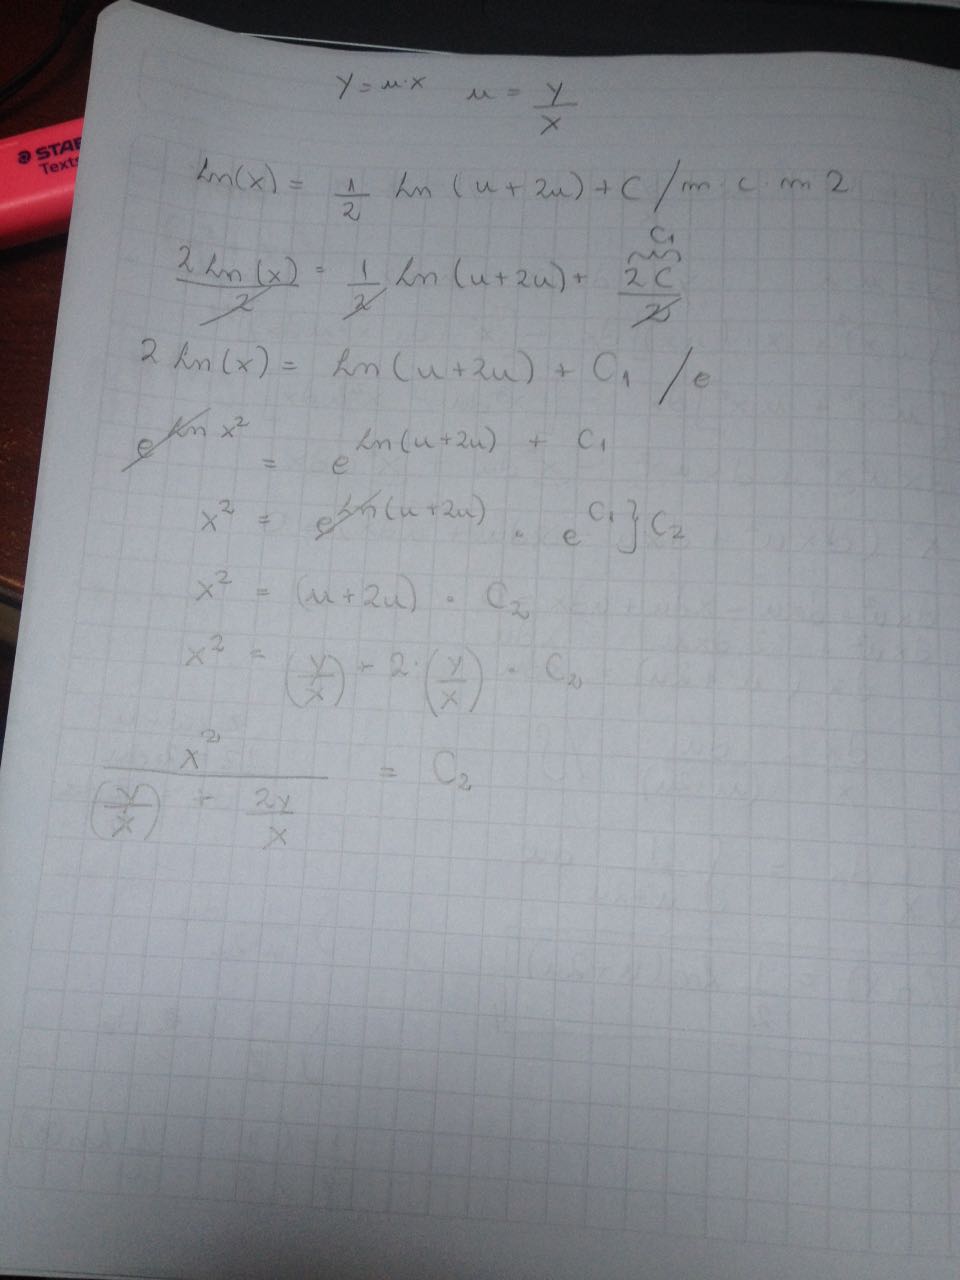 STAB
Texts
y = u·x   u = y/x
Ln(x) = 1/2 Ln (u + 2u) + C / m c m 2
2 Ln (x)/2 = 1/2 Ln (u + 2u) + 2C/2 C1
2 Ln (x) = Ln (u + 2u) + C1 / e
e^Ln x² = e^Ln (u + 2u) + C1
x² = e^Ln (u + 2u) · e^C1 } C2
x² = (u + 2u) · C2
x² = (y/x) + 2·(y/x) · C2
x² / ((y/x) + 2y/x) = C2